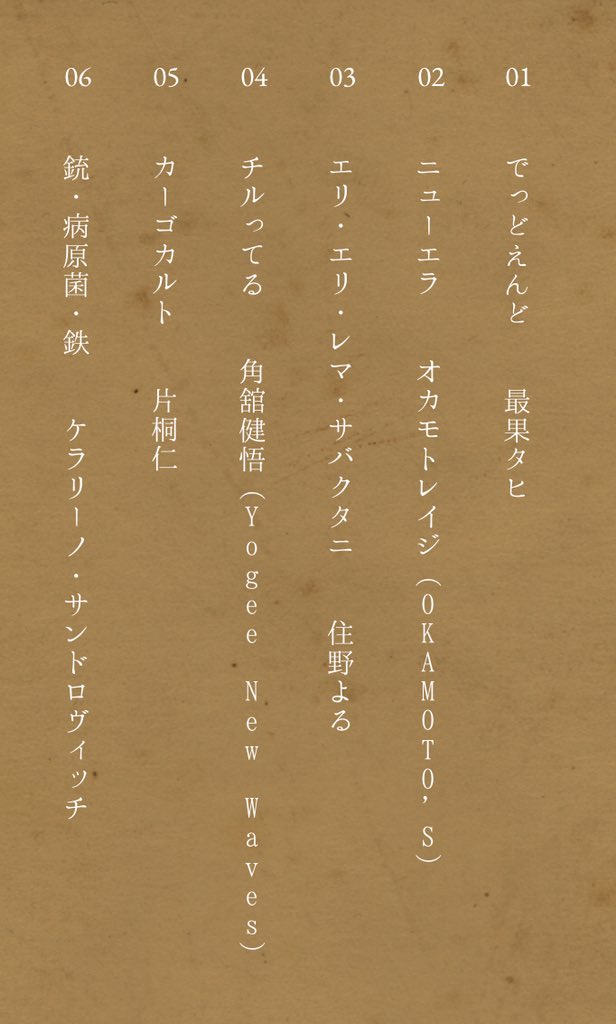 01 でっどえんど 最果タヒ
02 ニューエラ オカモトレイジ（OKAMOTO’S）
03 エリ・エリ・レマ・サバクタニ 住野よる
04 チルってる 角舘健悟（Yogee New Waves）
05 カーゴカルト 片桐仁
06 銃・病原菌・鉄 ケラリーノ・サンドロヴィッチ